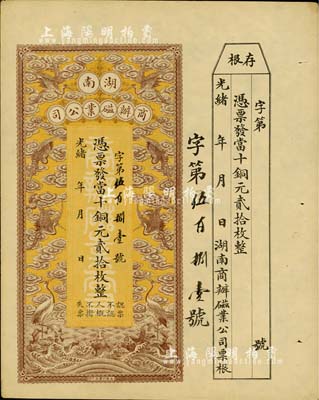 上海阳明拍卖
湖南
商辦磁業公司
字第伍百捌壹號
憑票發當十銅元貳拾枚整
光緒 年 月 日
認票不認人
不掛失票
字第伍百捌壹號
存根
字第 號
憑票發當十銅元貳拾枚整
光緒 年 月 日湖南商辦磁業公司票根